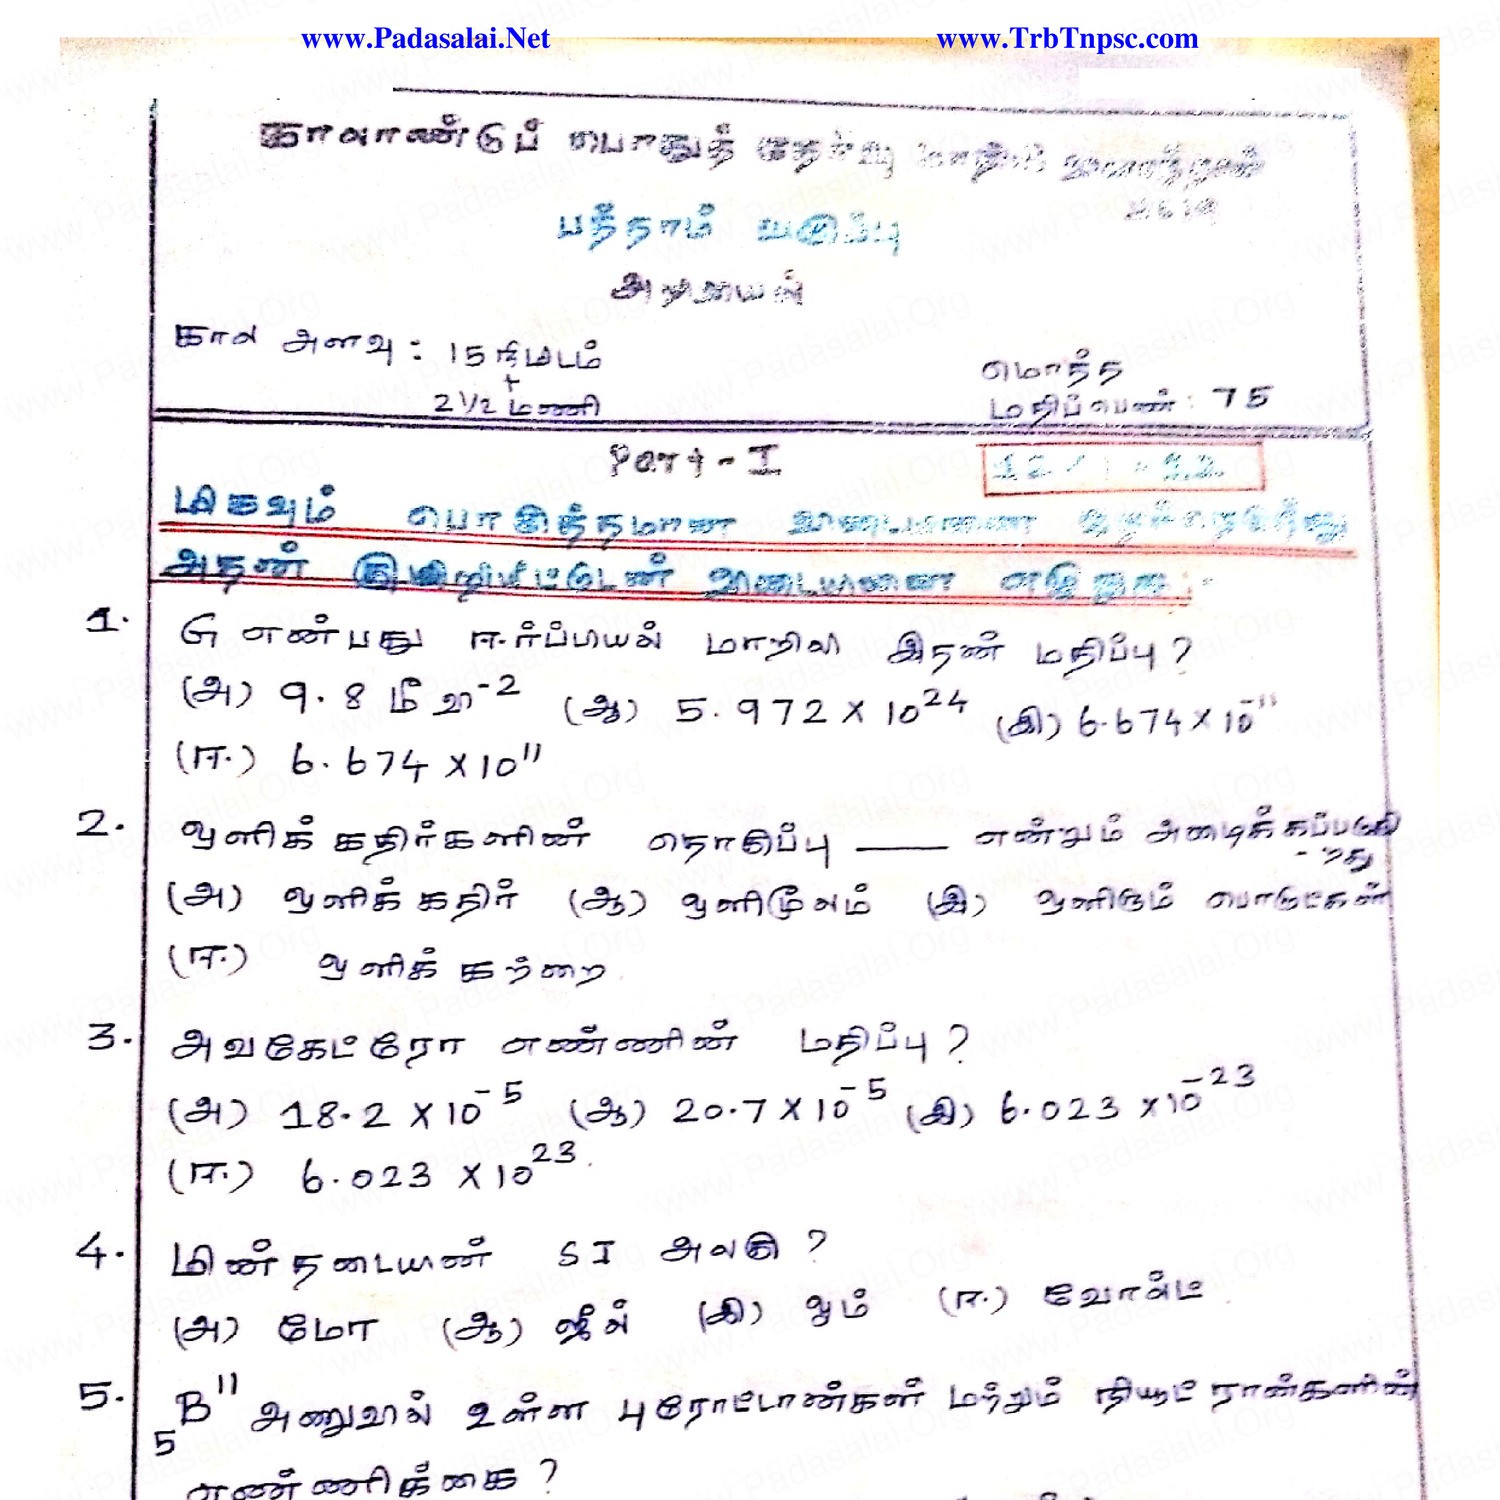 www.Padasalai.Net www.TrbTnpsc.com
காலாண்டுப் பொதுத் தேர்வு மாதிரி வினாத்தாள்
2019
பத்தாம் வகுப்பு
அறிவியல்
கால அளவு : 15 நிமிடம்
+
2 1/2 மணி
மொத்த
மதிப்பெண் : 75
Part - I
மிகவும் பொருத்தமான விடையினை
அதன் குறியீட்டுடன் விடையினை எழுதுக :-
1. G என்பது ஈர்ப்பியல் மாறிலி இதன் மதிப்பு ?
(அ) 9.8 மீ வி⁻² (ஆ) 5.972 × 10²⁴ (இ) 6.674 × 10⁻¹¹
(ஈ) 6.674 × 10¹¹
2. ஒளிக் கதிர்களின் தொகுப்பு ____ என்றும் அழைக்கப்படுகி
-றது
(அ) ஒளிக்கதிர் (ஆ) ஒளிமூலம் (இ) ஒளிரும் பொருட்கள்
(ஈ) ஒளிக் கற்றை
3. அவகேட்ரோ எண்ணின் மதிப்பு ?
(அ) 18.2 × 10⁻⁵ (ஆ) 20.7 × 10⁻⁵ (இ) 6.023 × 10⁻²³
(ஈ) 6.023 × 10²³
4. மின்தடையின் SI அலகு ?
(அ) மோ (ஆ) ஜீல் (இ) ஓம் (ஈ) வோல்ட்
5. ₅B¹¹ அணுவில் உள்ள புரோட்டான்கள் மற்றும் நியூட்ரான்களின்
எண்ணிக்கை ?